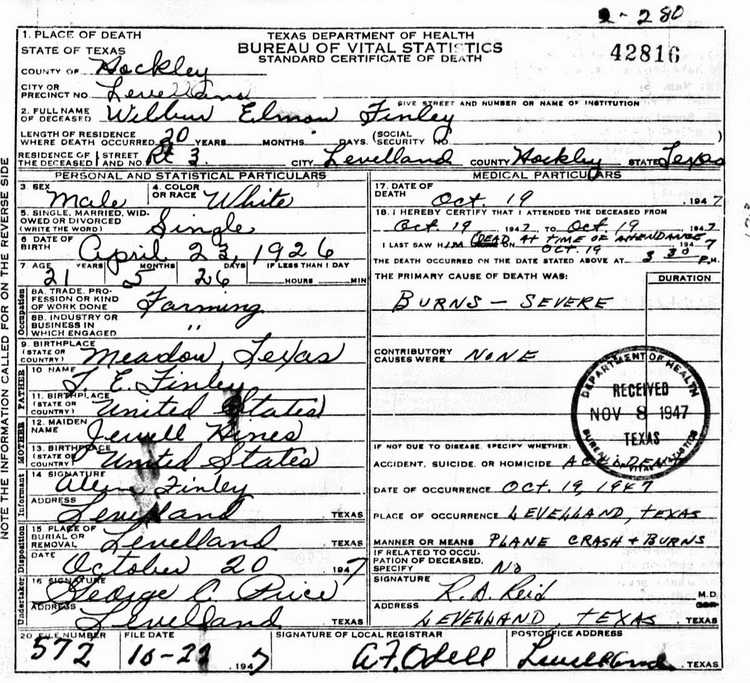 2-280
1. PLACE OF DEATH
STATE OF TEXAS
TEXAS DEPARTMENT OF HEALTH
BUREAU OF VITAL STATISTICS
STANDARD CERTIFICATE OF DEATH
42816
COUNTY OF Hockley
CITY OR PRECINCT NO. Levelland
GIVE STREET AND NUMBER OR NAME OF INSTITUTION
2. FULL NAME OF DECEASED Wilbur Elmon Finley
LENGTH OF RESIDENCE WHERE DEATH OCCURRED 20 YEARS MONTHS DAYS (SOCIAL SECURITY NO.
RESIDENCE OF THE DECEASED STREET AND NO. Rt 3. CITY Levelland COUNTY Hockley STATE Texas
PERSONAL AND STATISTICAL PARTICULARS
3. SEX Male
4. COLOR OR RACE White
5. SINGLE, MARRIED, WIDOWED OR DIVORCED (WRITE THE WORD) Single
6 DATE OF BIRTH April 23, 1926
7 AGE 21 YEARS 5 MONTHS 26 DAYS IF LESS THAN 1 DAY HOURS MIN
Occupation
8A. TRADE, PROFESSION OR KIND OF WORK DONE Farming
8B. INDUSTRY OR BUSINESS IN WHICH ENGAGED "
9. BIRTHPLACE (STATE OR COUNTRY) Meadow, Texas
FATHER
10 NAME T. E. Finley
11. BIRTHPLACE (STATE OR COUNTRY) United States
MOTHER
12. MAIDEN NAME Jewell Hines
13. BIRTHPLACE (STATE OR COUNTRY) United States
Informant
14 SIGNATURE Finley
ADDRESS Levelland TEXAS
Disposition
15 PLACE OF BURIAL OR REMOVAL Levelland TEXAS
DATE October 20 1947
Undertaker
16 SIGNATURE George C. Price
ADDRESS Levelland TEXAS
MEDICAL PARTICULARS
17. DATE OF DEATH Oct. 19 1947
18. I HEREBY CERTIFY THAT I ATTENDED THE DECEASED FROM
Oct 19 1947 TO Oct. 19 1947
I LAST SAW HIM (DEAD AT TIME OF ATTENDANCE) OCT. 19 1947
THE DEATH OCCURRED ON THE DATE STATED ABOVE AT 3 30 P.M.
THE PRIMARY CAUSE OF DEATH WAS:
DURATION
BURNS – SEVERE
CONTRIBUTORY CAUSES WERE NONE
DEPARTMENT OF HEALTH
RECEIVED
NOV 8 1947
TEXAS
BUREAU OF VITAL STATISTICS
IF NOT DUE TO DISEASE, SPECIFY WHETHER:
ACCIDENT, SUICIDE, OR HOMICIDE ACCIDENT
DATE OF OCCURRENCE OCT. 19, 1947
PLACE OF OCCURRENCE LEVELLAND, TEXAS
MANNER OR MEANS PLANE CRASH + BURNS
IF RELATED TO OCCUPATION OF DECEASED, SPECIFY No
SIGNATURE R. A. Reid M.D.
ADDRESS LEVELLAND, TEXAS TEXAS
20 FILE NUMBER 572
FILE DATE 10-22 1947
SIGNATURE OF LOCAL REGISTRAR A. F. Odell
POSTOFFICE ADDRESS Levelland TEXAS
NOTE THE INFORMATION CALLED FOR ON THE REVERSE SIDE